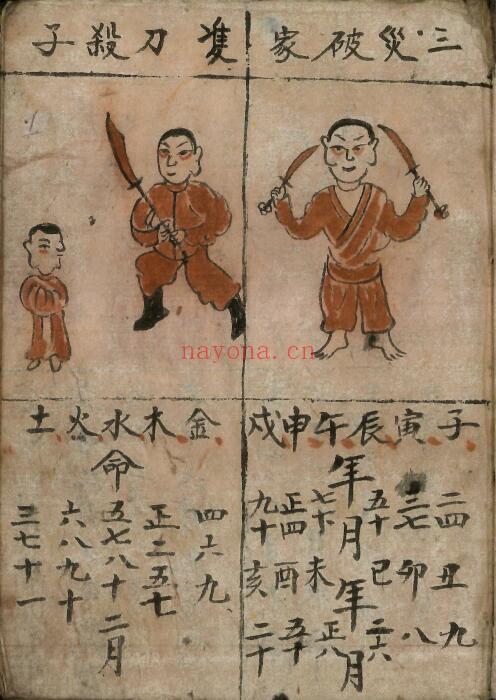 三災破家
隻刀殺子
子二四丑九
寅三七卯八
辰五十巳二六
年月年月
午七十未正八
申正四酉五十
戌九十亥二十
金四六九
木正二五七
水命五七八十二月
火六八九十
土三七十一
nayona.cn